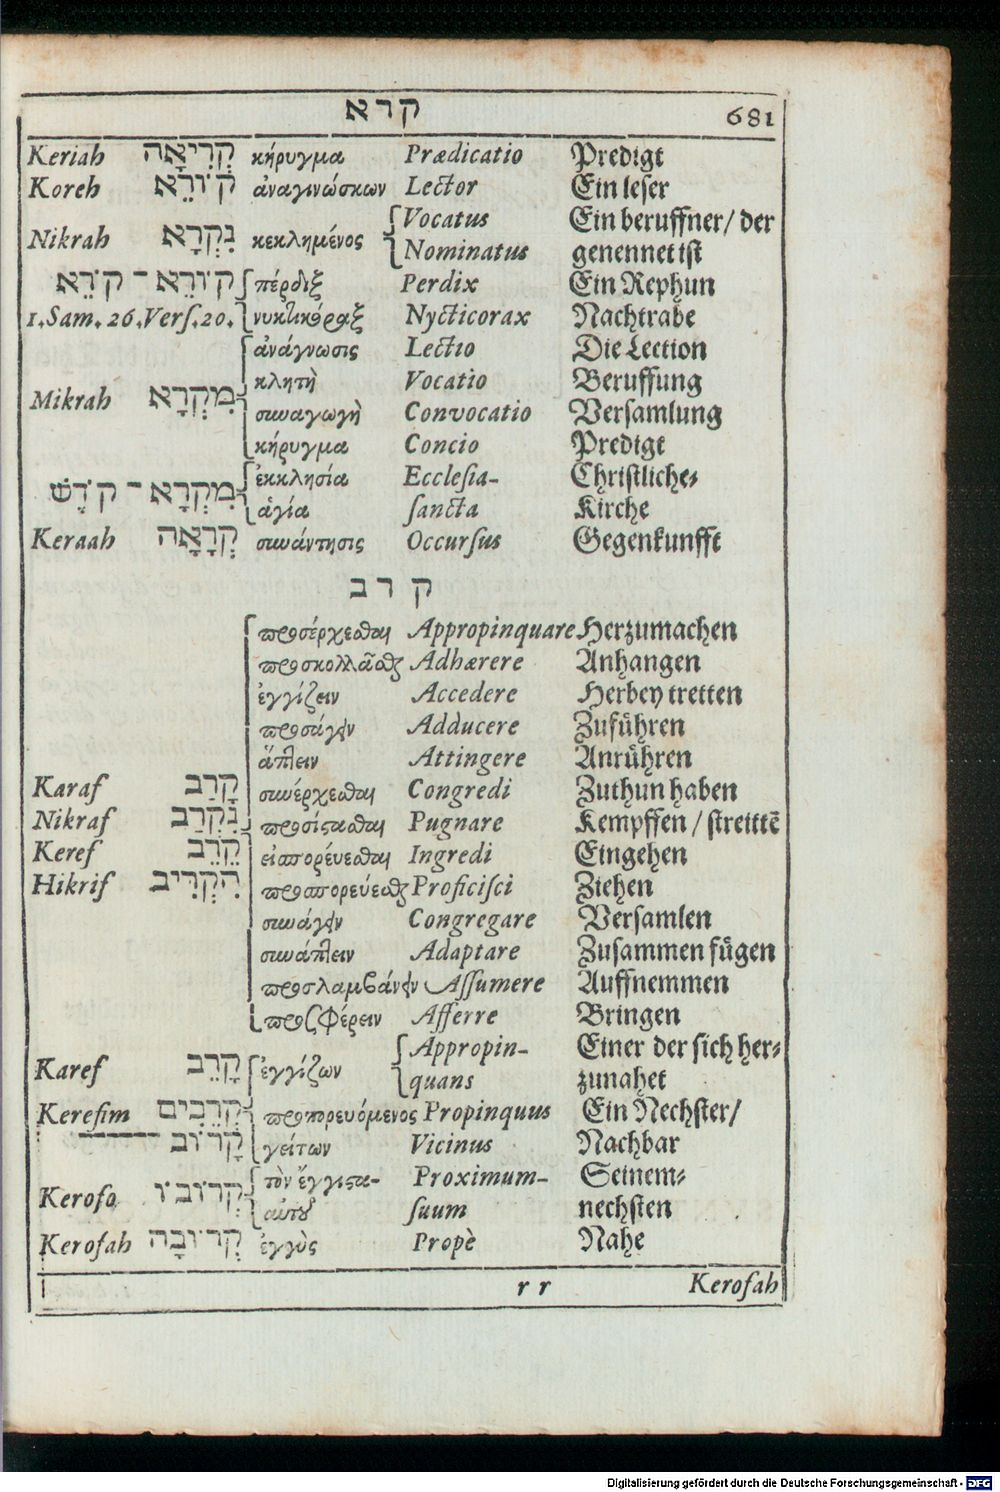 קרא 681
Keriah קְרִיאָה κήρυγμα Prædicatio Predigt
Koreh קוֹרֵא ἀναγινώσκων Lector Ein leser
Vocatus Ein beruffner/ der
Nikrah נִקְרָא κεκλημένος Nominatus genennet ist
קוֹרֵא - קֹרֵא πέρδιξ Perdix Ein Rephun
1.Sam. 26.Verſ.20. νυκτικόραξ Nycticorax Nachtrabe
ἀνάγνωσις Lectio Die Lection
κλητὴ Vocatio Beruffung
Mikrah מִקְרָא συναγωγὴ Convocatio Versamlung
κήρυγμα Concio Predigt
ἐκκλησία Eccleſia- Christliche-
מִקְרָא - קֹדֶשׁ ἁγία ſancta Kirche
Keraah קְרָאָה συνάντησις Occurſus Gegenkunfft
קרב
προσέρχεσθαι Appropinquare Herzumachen
προσκολλᾶσθαι Adhærere Anhangen
ἐγγίζειν Accedere Herbey tretten
προσάγειν Adducere Zuführen
ἅπτειν Attingere Anrühren
Karaf קָרַב συνέρχεσθαι Congredi Zuthun haben
Nikraf נִקְרַב προσίστασθαι Pugnare Kempffen / streittē
Keref קֵרֵב εἰσπορέυεσθαι Ingredi Eingehen
Hikrif הִקְרִיב προσπορεύεσθαι Proficiſci Ziehen
συνάγειν Congregare Versamlen
συνάπτειν Adaptare Zusammen fügen
προσλαμβάνειν Aſſumere Auffnemmen
προσφέρειν Afferre Bringen
Appropin- Einer der sich her-
Karef קָרֵב ἐγγίζων quans zunahet
Kerefim קְרֵבִים προσπορευόμενος Propinquus Ein Nechster/
קָרוֹב γείτων Vicinus Nachbar
τὸν ἔγγιστα- Proximum- Seinem-
Kerofo קְרוֹבוֹ αὐτοῦ ſuum nechsten
Kerofah קְרוֹבָה ἐγγὺς Propè Nahe
r r Kerofah
Digitalisierung gefördert durch die Deutsche Forschungsgemeinschaft - DFG